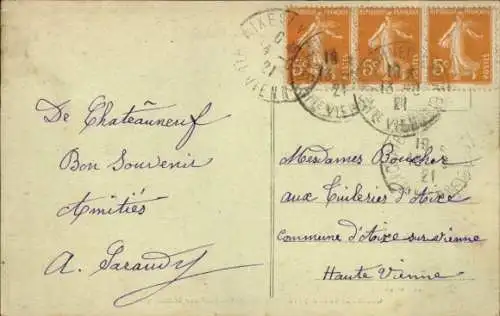 De Chateauneuf
Bon Souvenir
Amitiés
A. Saraudy
Mesdames Boucher
aux Tuileries d'Aixe
Commune d'Aixe sur Vienne
Haute Vienne
5c 5c 5c
POSTES
21
VIENNE